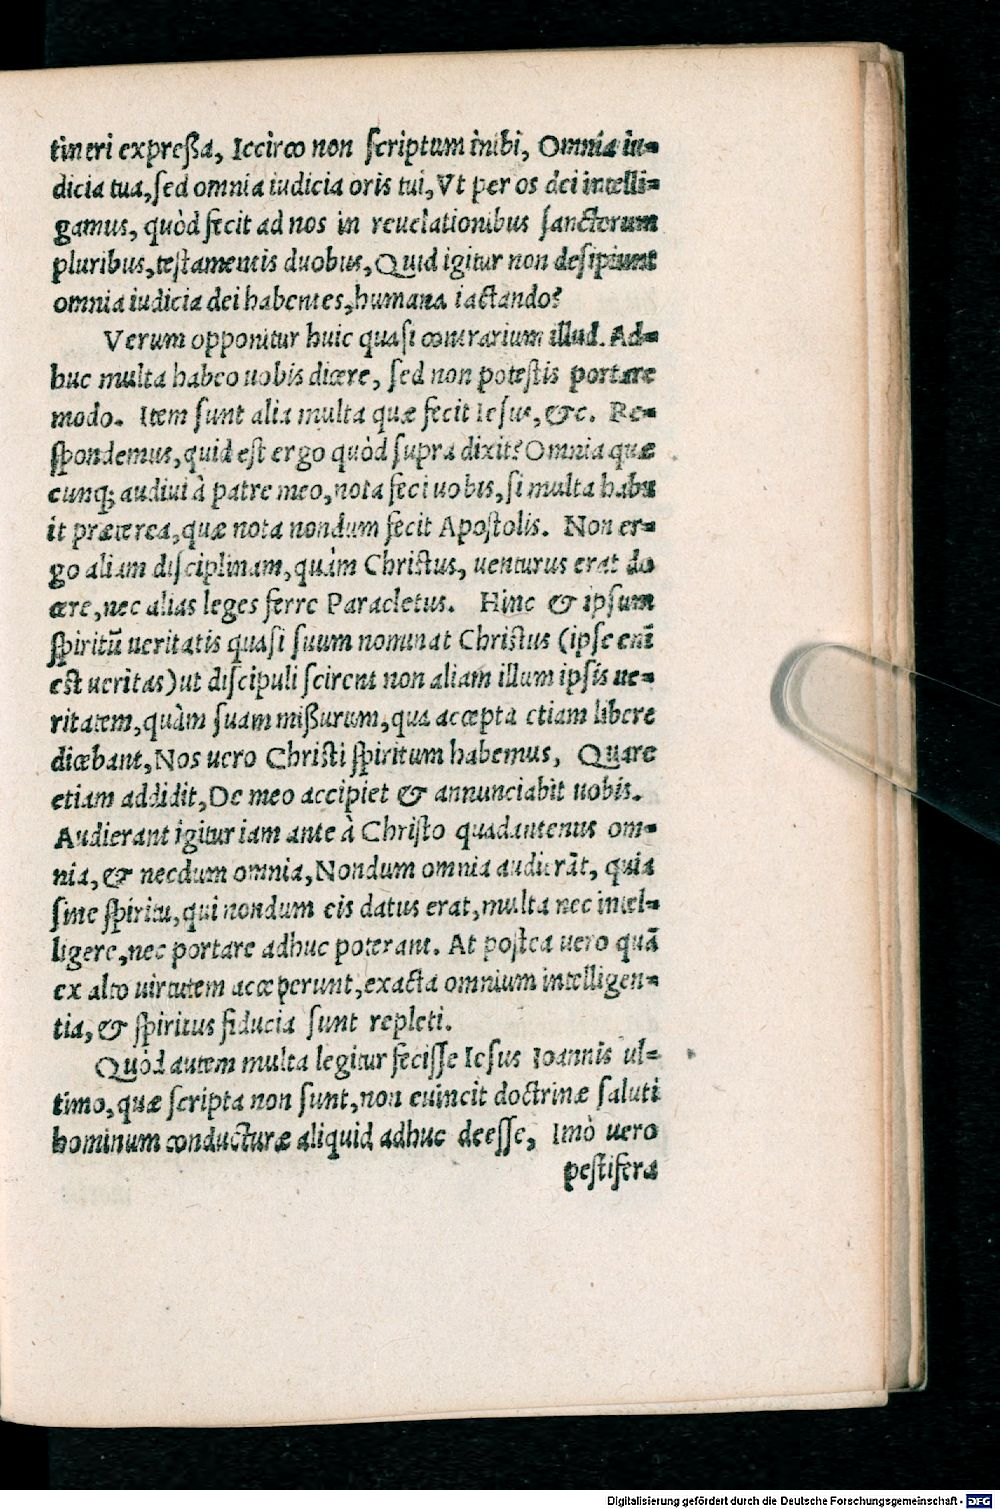 tineri expreßa, Iccirco non scriptum inibi, Omnia iu=
dicia tua, sed omnia iudicia oris tui, Vt per os dei intelli=
gamus, quòd fecit ad nos in reuelationibus sanctorum
pluribus, testamentis duobus, Quid igitur non desipiunt
omnia iudicia dei habentes, humana iactando?
Verum opponitur huic quasi contrarium illud. Ad=
huc multa habeo uobis dicere, sed non potestis portare
modo. Item sunt alia multa quæ fecit Iesus, &c. Re=
spondemus, quid est ergo quòd supra dixit? Omnia quæ
cunq; audiui à patre meo, nota feci uobis, si multa habu
it præterea, quæ nota nondum fecit Apostolis. Non er=
go aliam disciplinam, quàm Christus, uenturus erat do
cere, nec alias leges ferre Paracletus. Hinc & ipsum
spiritū ueritatis quasi suum nominat Christus (ipse enī
est ueritas) ut discipuli scirent non aliam illum ipsis ue=
ritatem, quàm suam mißurum, qua accepta etiam libere
dicebant, Nos uero Christi spiritum habemus, Quare
etiam addidit, De meo accipiet & annunciabit uobis.
Audierant igitur iam ante à Christo quadantenus om=
nia, & necdum omnia, Nondum omnia audierāt, quia
sine spiritu, qui nondum eis datus erat, multa nec intel=
ligere, nec portare adhuc poterant. At postea uero quā
ex alto uirtutem acceperunt, exacta omnium intelligen=
tia, & spiritus fiducia sunt repleti.
Quòd autem multa legitur fecisse Iesus Ioannis ul=
timo, quæ scripta non sunt, non euincit doctrinæ saluti
hominum conducturæ aliquid adhuc deesse, Imò uero
pestifera
Digitalisierung gefördert durch die Deutsche Forschungsgemeinschaft - DFG